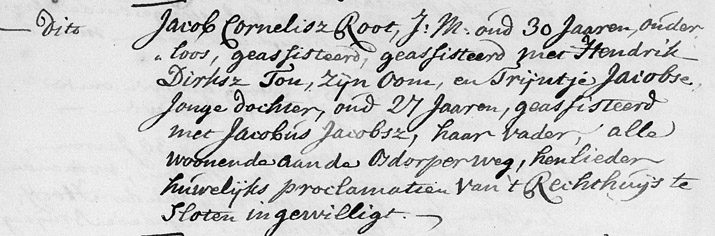 — Dito Jacob Cornelisz Root, J: M: oud 30 Jaaren, ouder
loos, geassisteerd, geassisteerd met Hendrik
Dirksz Ton, zijn Oom, en Trijntje Jacobse,
Jonge dochter, oud 27 Jaaren, geassisteerd
met Jacobus Jacobsz, haar vader, alle
woonende aan de Osdorper weg, henlieder
huwelijks proclamatien van 't Rechthuijs te
Sloten ingewilligt. —